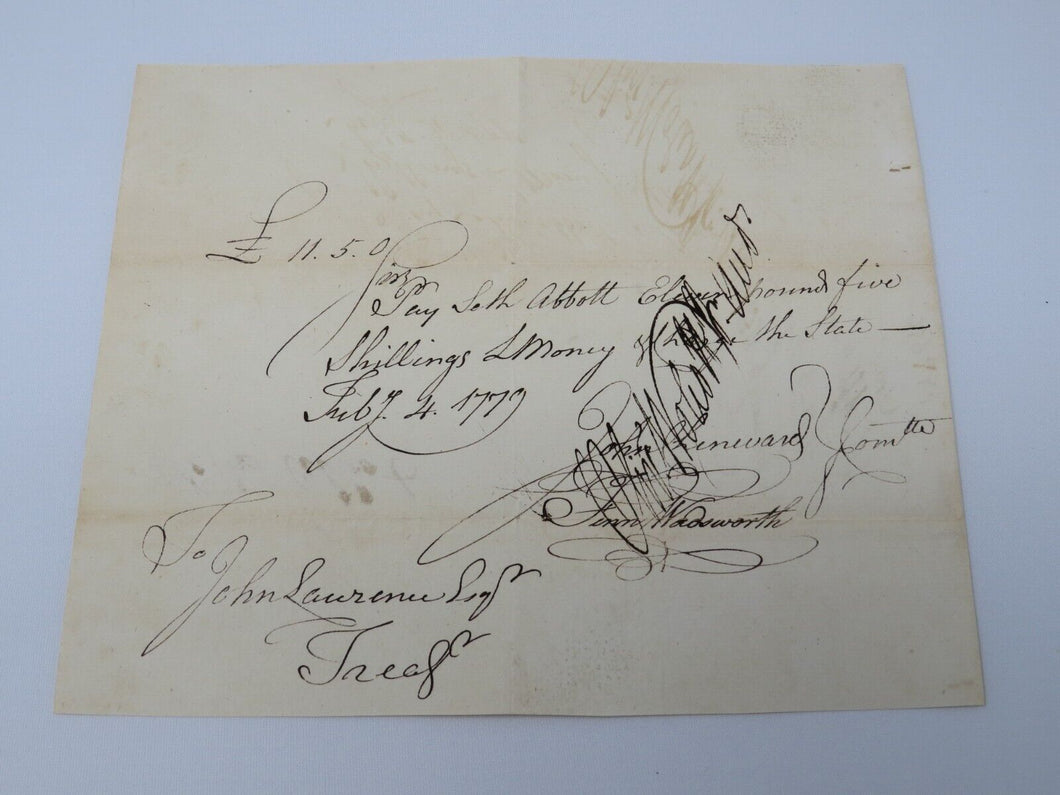 £ 11.5.0
Sir
Pay Seth Abbott Eleven pound five
Shillings LMoney & charge the State —
Feby. 4. 1779
John Chenevard Comtte
Fenn Wadsworth
To
John Lawrence Esqr
Treasr